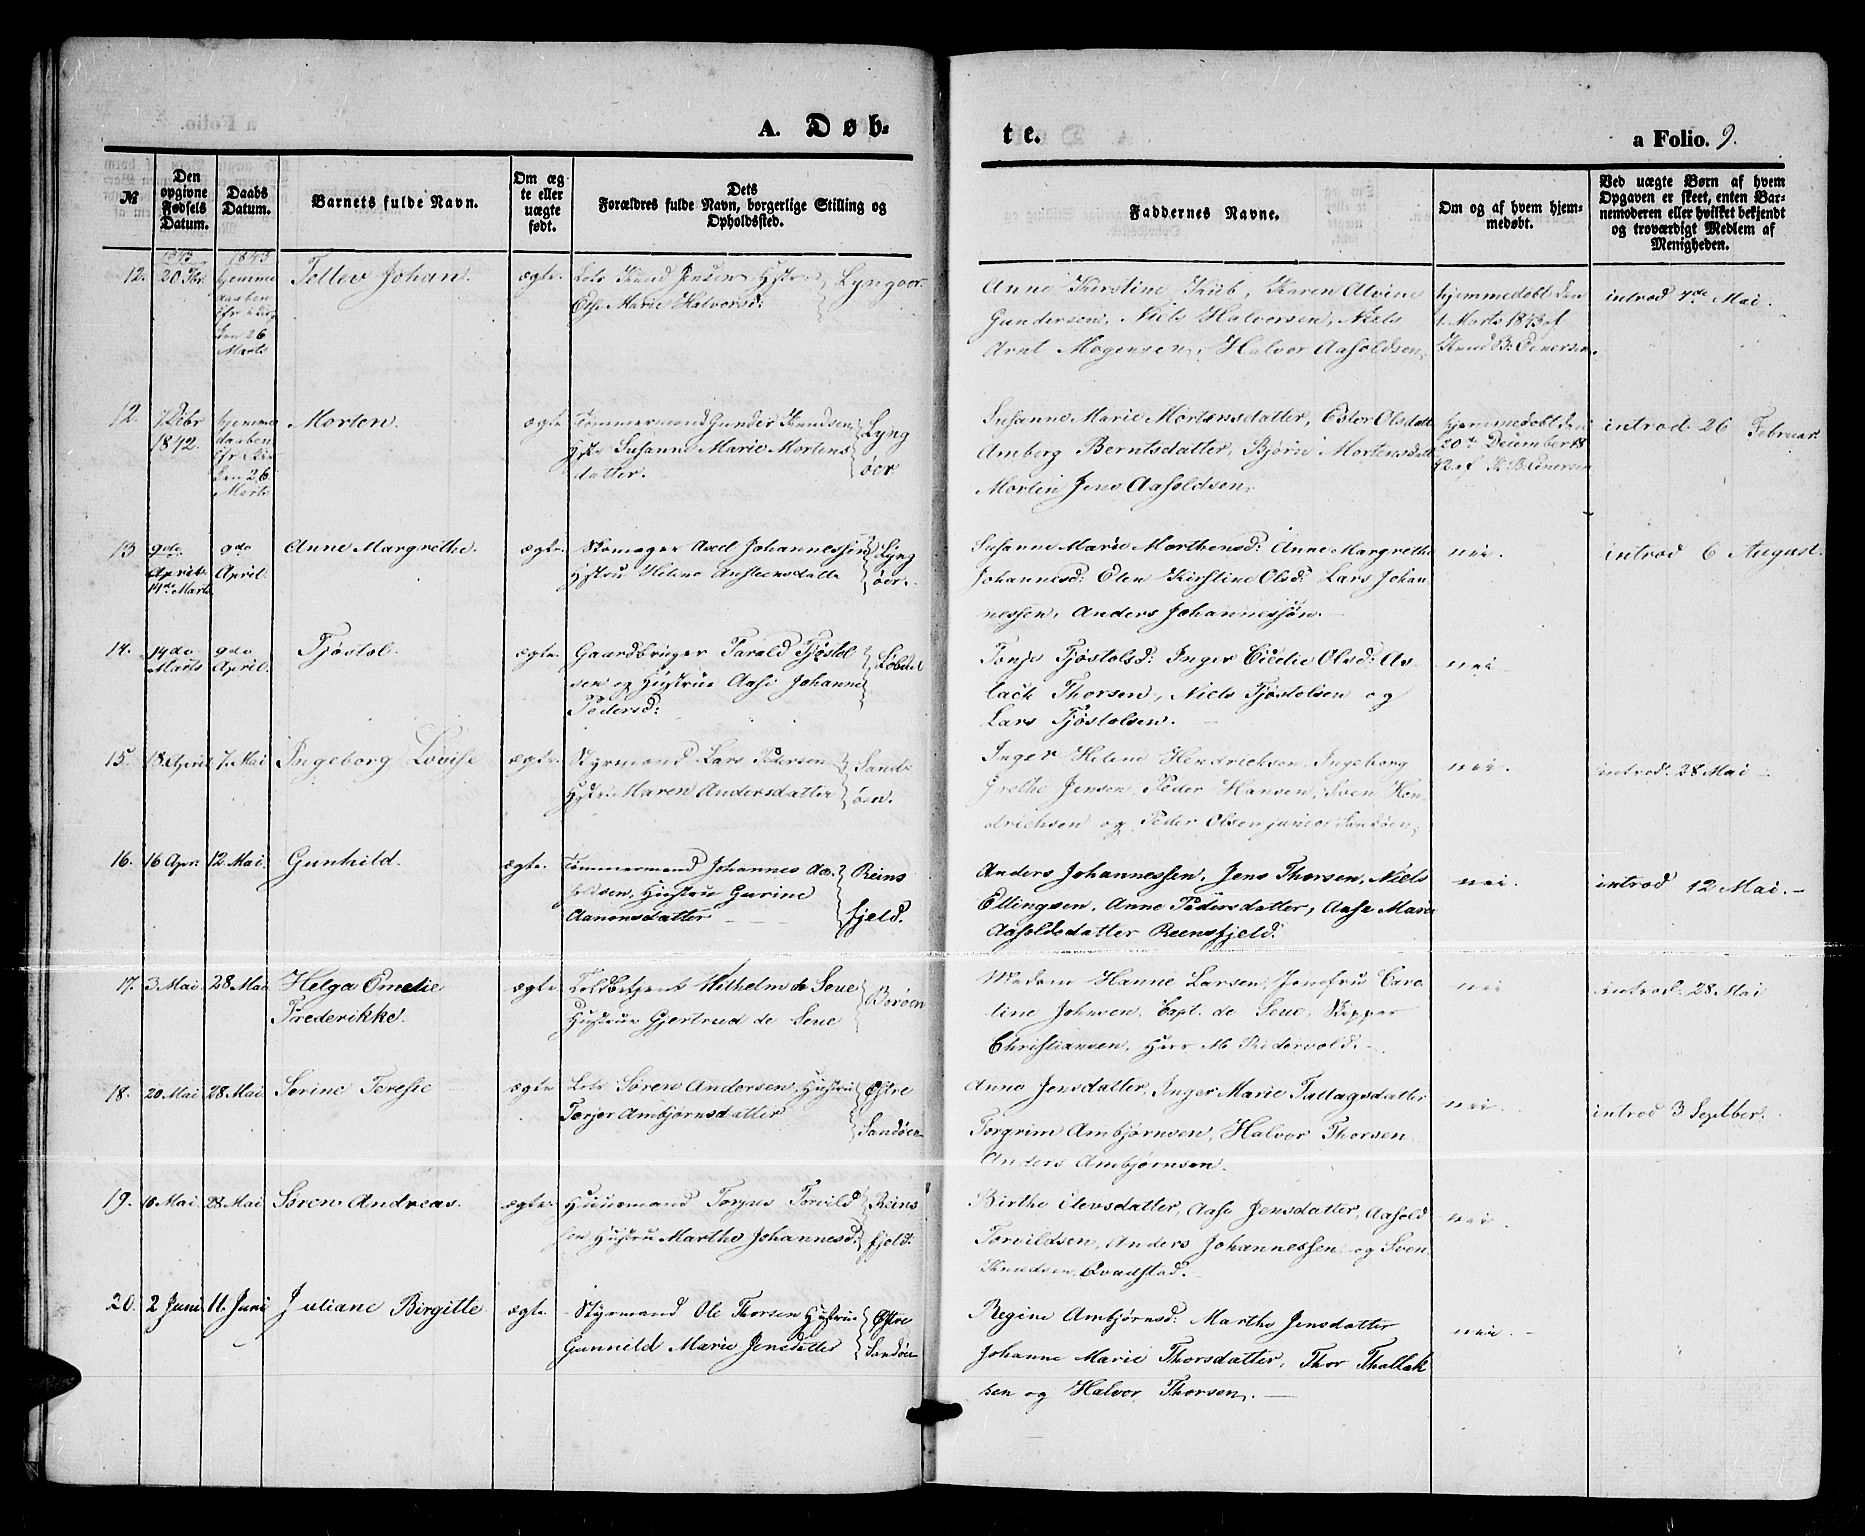 A. Døb-
te.
a Folio. 9.
№
Den opgivne Fødsels Datum.
Daabs Datum.
Barnets fulde Navn.
Om ægte eller uægte født.
Dets Forældres fulde Navn, borgerlige Stilling og Opholdssted.
Faddernes Navne.
Om og af hvem hjemmedøbt.
Ved uægte Børn af hvem Opgaven er skeet, enten Barnemoderen eller hvilket bekjendt og troværdigt Medlem af Menigheden.
1843 1843
12. 20 Tollev Johan. ægte. Lods Knud Jensen, Hstr. Lyngøer
hjemme
daaben
den 26
Marts
Else Marie Halvorsd:
Anne Kirstine Karen Alvine
Gundersen, Niels Halversen, Niels
Arnt Mogensen, Halvor Aasoldsen,
hjemmedøbt den
1. Marts 1843 af
Knud B: Enersen.
introd 7de Mai.
12. 7 Debr
1842.
hjemme
daaben
den 26
Marts
Morten. ægte Tømmermand Gunder Knudsen
Hstr Susanne Marie Mortens
datter.
Lyng
øer
Susanne Marie Mortensdatter, Olsdatt
Amberg Berntsdatter, Bjørn Mortensdatt
Morten Jens Aasoldsen,
hjemmedøbt den
20de December 18
42 af K. B. Enersen
introd 26 Februar.
13 9de
April.
14de Marts
9de
April.
Anne Margrethe. ægte. Skomager Axel Johannessøn
Hustru Helene Ansteensdatte
Lyng
øer.
Susanne Marie Morthensd: Anne Margrethe
Johannesd: Elen Kirstine Olsd: Lars Johan
nessen, Anders Johannessøn.
nei. introd 6 August.
14. 14de
Marts
9de
April.
Tjøstol. ægte. Gaardbruger Tarald Tjøstol
sen og Hustrue Aase Johanne
Pedersd:
Tonje Tjøstolsd: Inger Cicilie Olsd: As-
lack Thorsen, Niels Tjøstolsen og
Lars Tjøstolsen.
nei
15. 18 April 7. Mai Ingeborg Lovise ægte. Styrmand Lars Pedersen
Hstr. Maren Andersdatter
Sand-
øen.
Inger Helene Hendrichsen, Ingeborg
Grethe Jensen, Peder Hansen, Sven Hen-
drichsen og Peder Olsen junior Sandøen,
nei. introd. 28 Mai
16. 16 Apr. 12. Mai. Gunhild. ægte. Tømmermand Johannes Aa-
soldsen, Hustru Gurine
Aanonsdatter
Reins
fjeld.
Anders Johannessen, Jens Thorsen, Niels
Ellingsen, Anne Pedersdatter, Aase Marie
Aasoldsdatter Reensfjeld.
nei. introd 12 Mai.
17. 3 Mai 28 Mai Helga Emelie
Frederikke.
ægte Toldbetjent Wilhelm de Seue
Hustrue Gjertrud de Seue
Borøen
Madem Hanne Larsen, Jomfru Caro
line Johnsen, Capt. de Seue, Skipper
Christiansen, Herr M. Ridervold.
nei introd. 28 Mai
18. 20 Mai 28 Mai. Sørine Teresie ægte Lods Søren Andersen, Hustru
Terjer Ambjørnsdatter
Østre
Sandøen
Anne Jensdatter, Inger Marie Tallagsdatter
Torgrim Ambjørnsen, Halvor Thorsen
Anders Ambjørnsen.
nei. introd 3 Septber.
19. 16 Mai. 28 Mai Søren Andreas. ægte. Huusmand Torjus Torvild
sen Hustru Marthe Johannesd:
Reins
fjeld.
Birthe Elevsdatter, Aase Jensdatter, Aasold
Torvildsen, Anders Johannessen og Sven
Knudsen, Qvadstad.
nei.
20. 2 Juni. 11. Juni Juliane Birgitte ægte. Styrmand Ole Thorsen Hustrue
Gunnild Marie Jensdatter
Østre
Sandøen
Regine Ambjørnsd: Marthe Jensdatter
Johanne Marie Thorsdatter, Thor Thallak
sen og Halvor Thorsen.
nei.